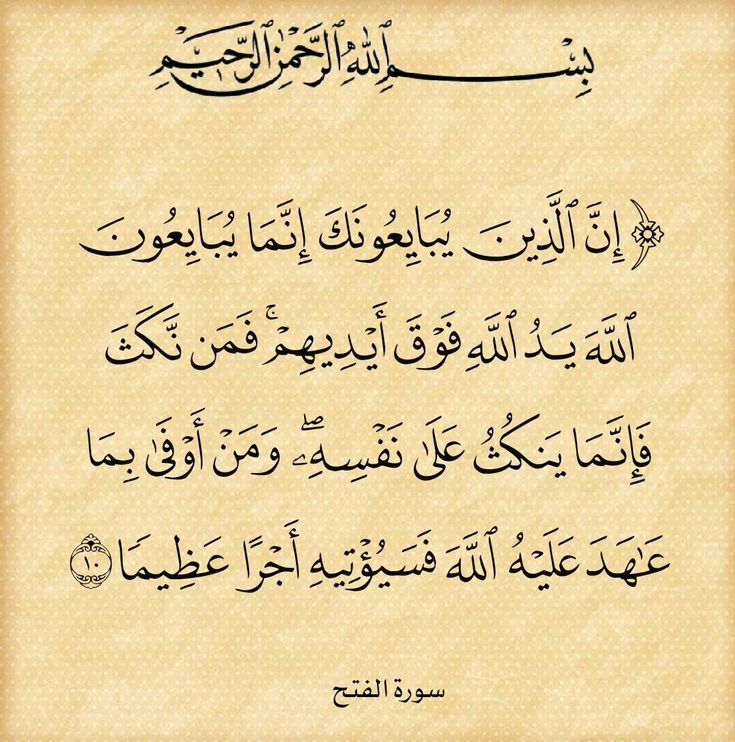 بِسْمِ ٱللَّهِ ٱلرَّحْمَٰنِ ٱلرَّحِيمِ
﴿ إِنَّ ٱلَّذِينَ يُبَايِعُونَكَ إِنَّمَا يُبَايِعُونَ
ٱللَّهَ يَدُ ٱللَّهِ فَوْقَ أَيْدِيهِمْ ۚ فَمَن نَّكَثَ
فَإِنَّمَا يَنكُثُ عَلَىٰ نَفْسِهِۦ ۖ وَمَنْ أَوْفَىٰ بِمَا
عَٰهَدَ عَلَيْهُ ٱللَّهَ فَسَيُؤْتِيهِ أَجْرًا عَظِيمًا ١٠
سورة الفتح